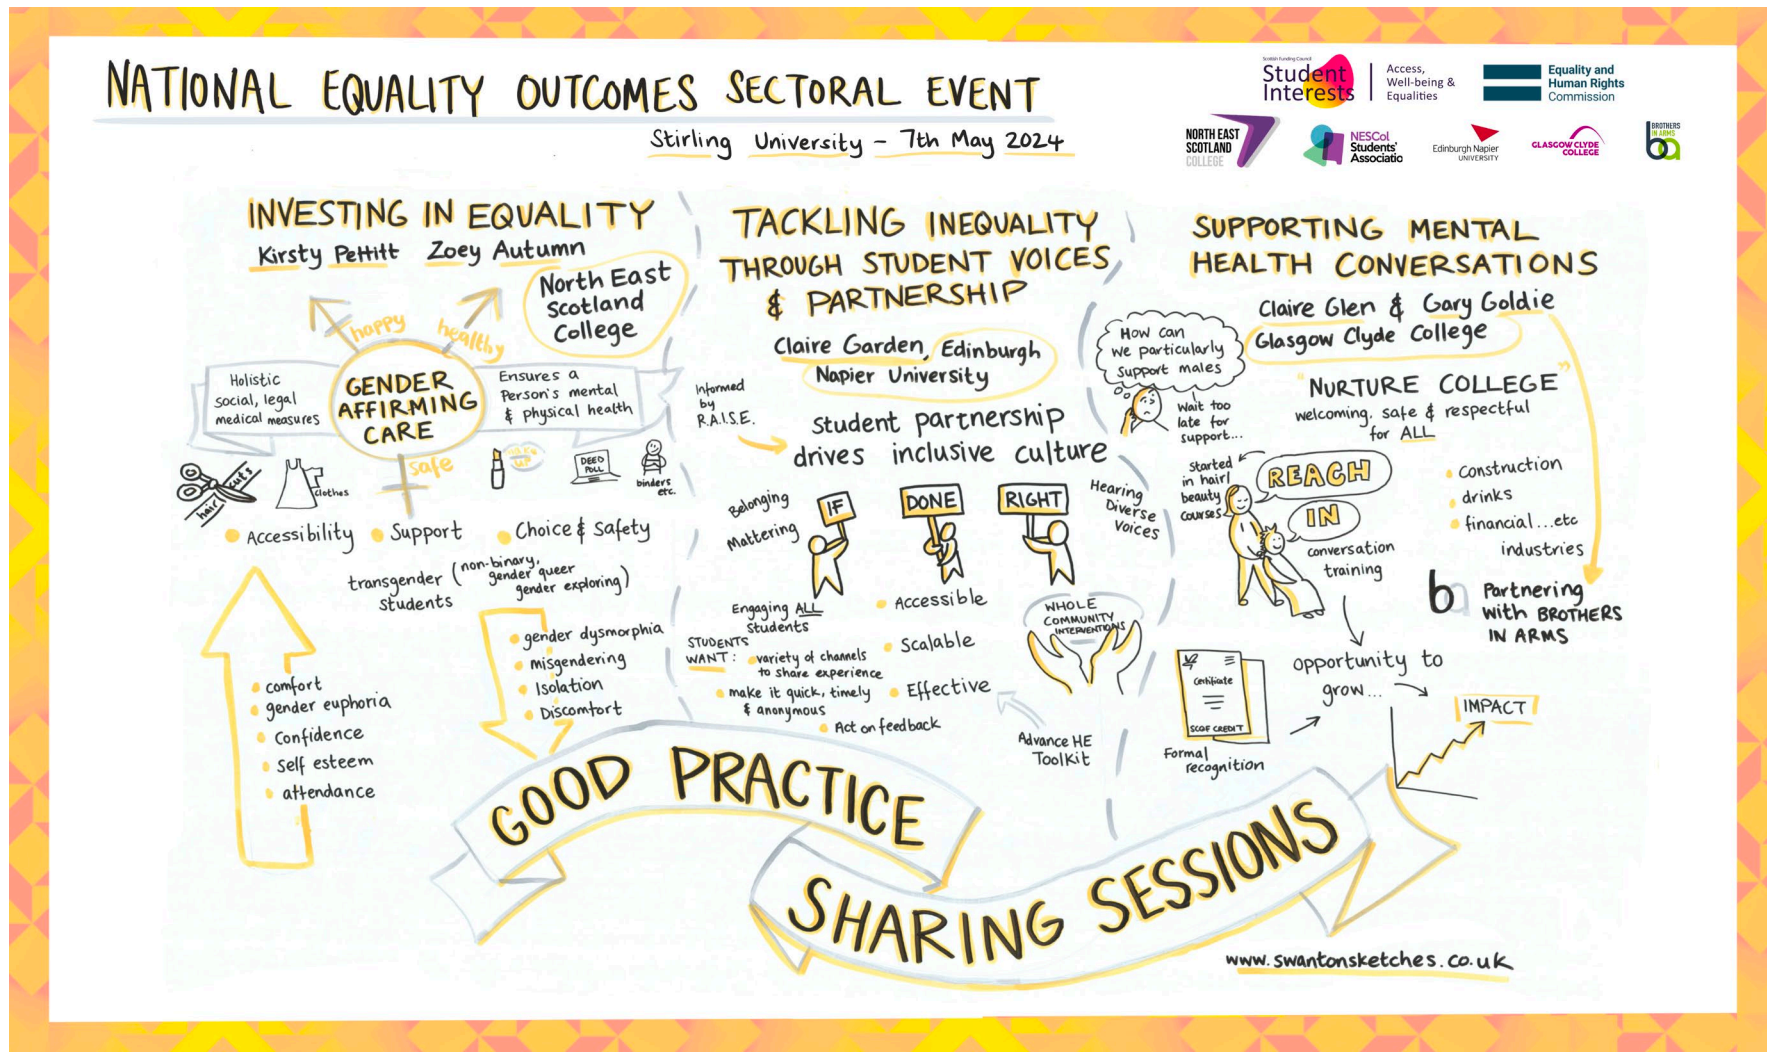 NATIONAL EQUALITY OUTCOMES SECTORAL EVENT
Stirling University - 7th May 2024
Scottish Funding Council
Student
Interests
Access,
Well-being &
Equalities
Equality and
Human Rights
Commission
NORTH EAST
SCOTLAND
COLLEGE
NESCol
Students'
Associatio
Edinburgh Napier
UNIVERSITY
GLASGOW CLYDE
COLLEGE
BROTHERS
IN ARMS
ba
INVESTING IN EQUALITY
Kirsty Pettitt Zoey Autumn
North East
Scotland
College
happy
healthy
Holistic
social, legal
medical measures
GENDER
AFFIRMING
CARE
Ensures a
Person's mental
& physical health
safe
hair cuts
clothes
make
up
DEED
POLL
binders
etc.
Accessibility
Support
Choice & Safety
transgender
students
(non-binary,
gender queer
gender exploring)
comfort
gender euphoria
confidence
self esteem
attendance
gender dysmorphia
misgendering
Isolation
Discomfort
TACKLING INEQUALITY
THROUGH STUDENT VOICES
& PARTNERSHIP
Claire Garden, Edinburgh
Napier University
Informed
by
R.A.I.S.E.
student partnership
drives inclusive culture
Belonging
Mattering
IF
DONE
RIGHT
Hearing
Diverse
Voices
Engaging ALL
Students
STUDENTS
WANT:
variety of channels
to share experience
make it quick, timely
& anonymous
Act on feedback
Accessible
Scalable
Effective
WHOLE
COMMUNITY
INTERVENTIONS
Advance HE
Toolkit
SUPPORTING MENTAL
HEALTH CONVERSATIONS
Claire Glen & Gary Goldie
Glasgow Clyde College
How can
we particularly
support males
Wait too
late for
support...
"NURTURE COLLEGE"
welcoming, safe & respectful
for ALL
Started
in hair/
beauty
courses
REACH
IN
conversation
training
construction
drinks
financial...etc
industries
ba
Partnering
with BROTHERS
IN ARMS
opportunity to
grow...
IMPACT
Certificate
SCQF CREDIT
Formal
recognition
GOOD PRACTICE
SHARING SESSIONS
www.swantonsketches.co.uk